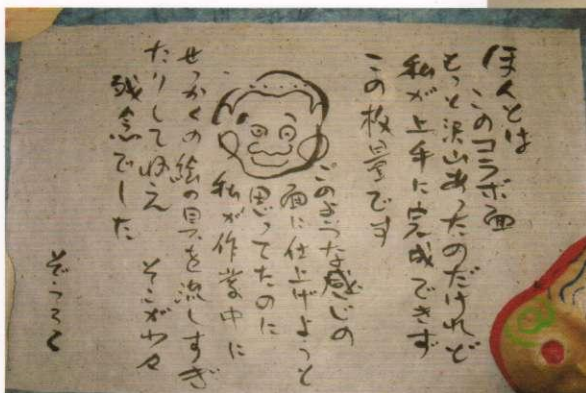 ほんとは
このコラボ面
もっと沢山あったのだけれど
私が上手に完成できず
この枚量です
このような感じの
面に仕上げようと
思ってたのに
私が作業中に
せっかくの絵の具を流しすぎ
たりして
そこが少々
残念でした